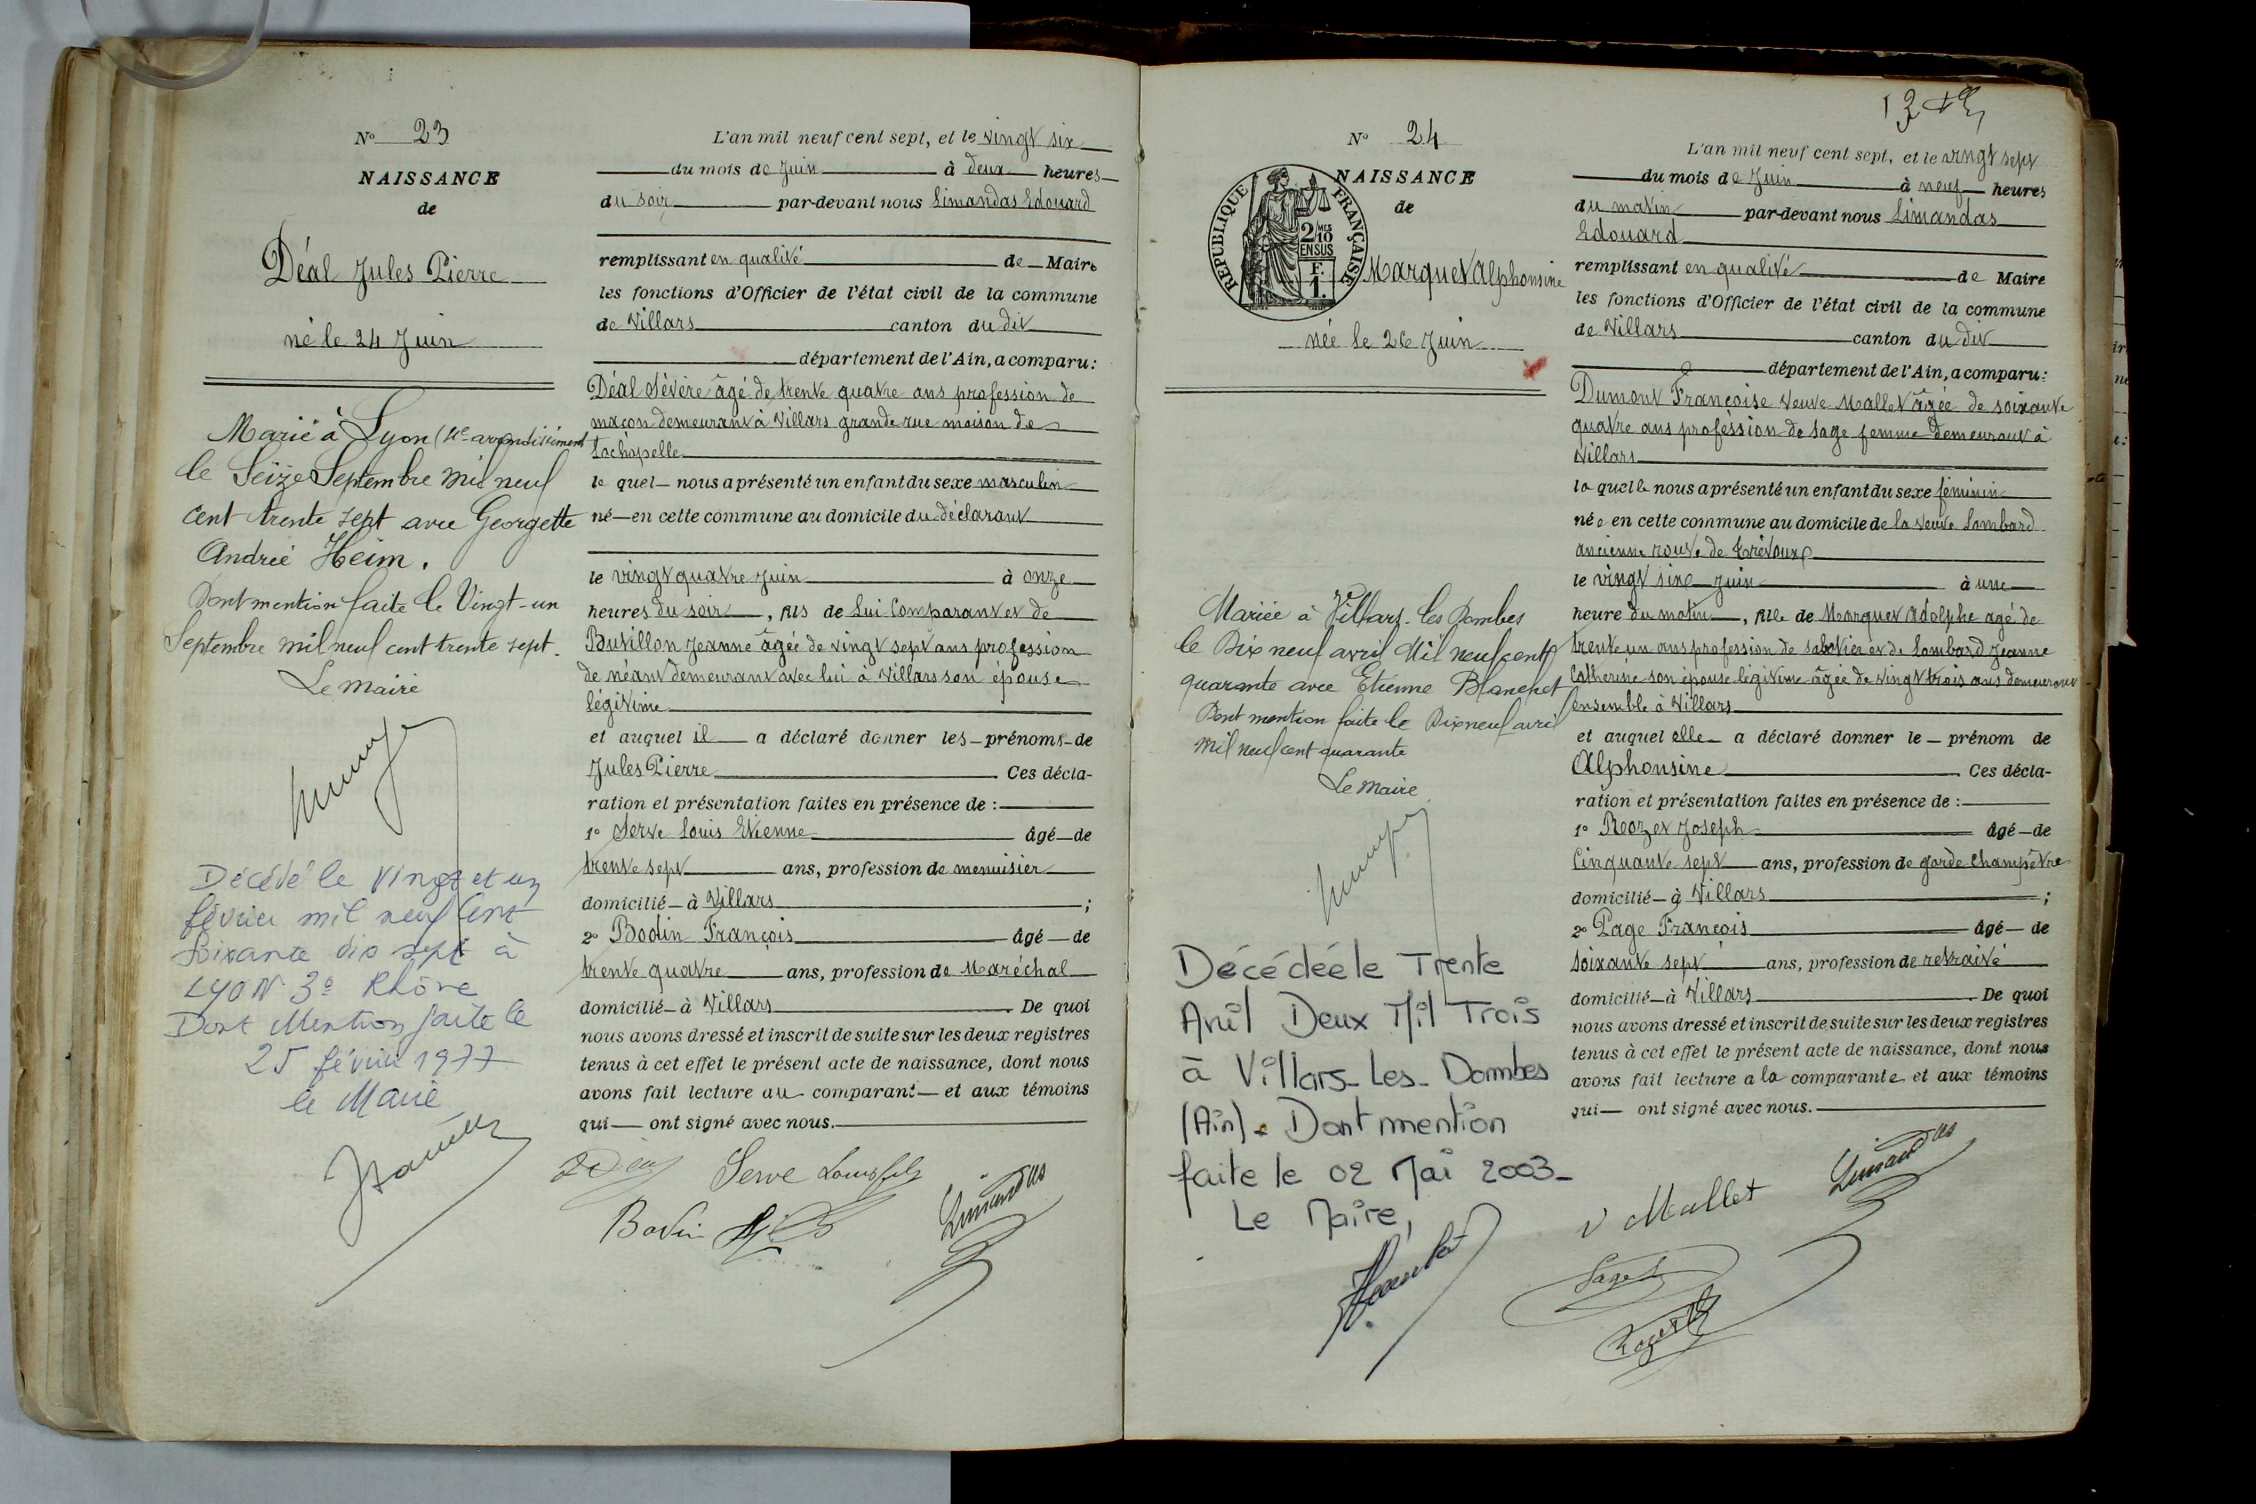 N° 23
NAISSANCE
de
Déal Jules Pierre
né le 24 Juin
Marié à Lyon (4e arrondissement
le Seize Septembre mil neuf
cent trente sept avec Georgette
Andrée Heim.
Dont mention faite le Vingt-un
Septembre mil neuf cent trente sept.
Le Maire
Décédé le Vingt et un
février mil neuf cent
soixante dix sept à
LYON 3e Rhône
Dont Mention faite le
25 février 1977
le Maire
L'an mil neuf cent sept, et le vingt six
du mois de Juin à deux heures
du soir par-devant nous Limandas Edouard
remplissant en qualité de Maire
les fonctions d'Officier de l'état civil de la commune
de Villars canton du dit
département de l'Ain, a comparu:
Déal Sévère âgé de trente quatre ans profession de
maçon demeurant à Villars grande rue maison de
Lachapelle
le quel nous a présenté un enfant du sexe masculin
né en cette commune au domicile du déclarant
le vingt quatre Juin à onze
heures du soir, fils de lui Comparant et de
Buvillon Jeanne âgée de vingt sept ans profession
de néant demeurant avec lui à Villars son épouse
légitime
et auquel il a déclaré donner les prénoms de
Jules Pierre Ces décla-
ration et présentation faites en présence de :
1° Serve Louis Etienne âgé de
trente sept ans, profession de menuisier
domicilié à Villars ;
2° Bodin François âgé de
trente quatre ans, profession de Maréchal
domicilié à Villars De quoi
nous avons dressé et inscrit de suite sur les deux registres
tenus à cet effet le présent acte de naissance, dont nous
avons fait lecture au comparant et aux témoins
qui ont signé avec nous.
Serve Louis fils
Bodin
Limandas
N° 24
NAISSANCE
de
REPUBLIQUE FRANÇAISE
2/10 MES
EN SUS
F.
1.
Marquet Alphonsine
née le 26 Juin
Mariée à Villars-les Dombes
le Dix neuf avril Mil neuf cent
quarante avec Etienne Blanchet
Dont mention faite le Dix neuf avril
mil neuf cent quarante
Le Maire
Décédée le Trente
Avril Deux Mil Trois
à Villars-Les-Dombes
(Ain). Dont mention
faite le 02 Mai 2003-
Le Maire,
L'an mil neuf cent sept, et le vingt sept
du mois de Juin à neuf heures
du matin par-devant nous Limandas
Edouard
remplissant en qualité de Maire
les fonctions d'Officier de l'état civil de la commune
de Villars canton du dit
département de l'Ain, a comparu:
Dumont Françoise veuve Mallet âgée de soixante
quatre ans profession de sage femme demeurant à
Villars
la quelle nous a présenté un enfant du sexe féminin
née en cette commune au domicile de la veuve Lombard
ancienne route de Trévoux
le vingt six Juin à une
heure du matin, fille de Marquet Adolphe agé de
trente un ans profession de sabotier et de Lombard Jeanne
Catherine son épouse légitime âgée de vingt trois ans demeurant
ensemble à Villars
et auquel elle a déclaré donner le prénom de
Alphonsine Ces décla-
ration et présentation faites en présence de :
1° Rozet Joseph âgé de
Cinquante sept ans, profession de garde champêtre
domicilié à Villars ;
2° Page François âgé de
soixante sept ans, profession de retraité
domicilié à Villars De quoi
nous avons dressé et inscrit de suite sur les deux registres
tenus à cet effet le présent acte de naissance, dont nous
avons fait lecture a la comparante et aux témoins
qui ont signé avec nous.
Limandas
v Mallet
Page
Rozet